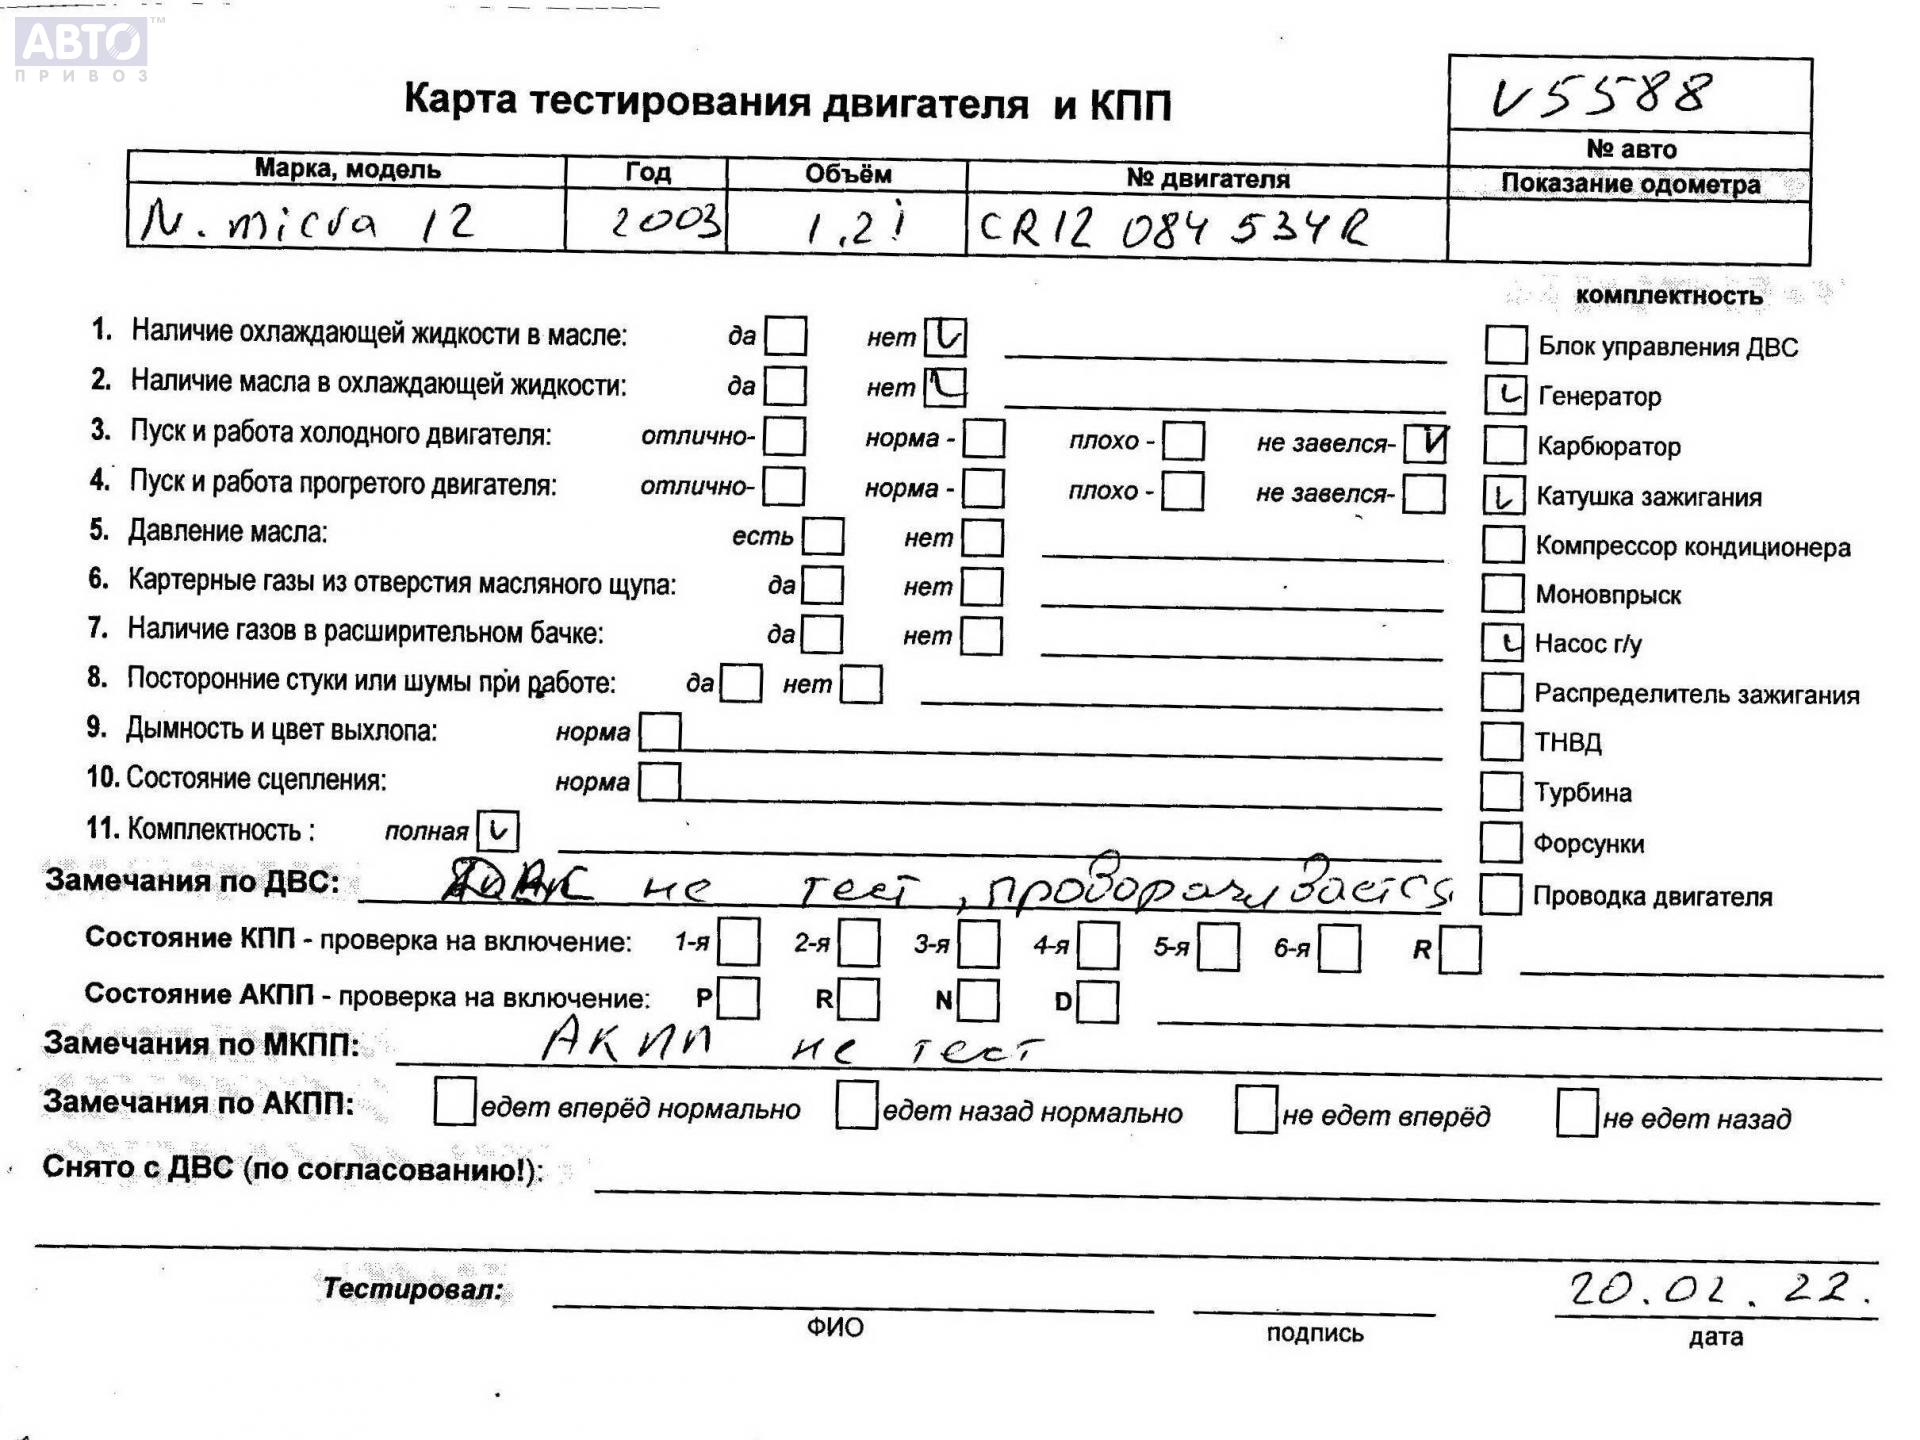 АВТО™
ПРИВОЗ
Карта тестирования двигателя и КПП
V5588
№ авто
Марка, модель Год Объём № двигателя Показание одометра
N. micra 12 2003 1,2i CR12 084 534R
комплектность
1. Наличие охлаждающей жидкости в масле: да нет
Блок управления ДВС
2. Наличие масла в охлаждающей жидкости: да нет
Генератор
3. Пуск и работа холодного двигателя: отлично- норма - плохо - не завелся-
Карбюратор
4. Пуск и работа прогретого двигателя: отлично- норма - плохо - не завелся-
Катушка зажигания
5. Давление масла: есть нет
Компрессор кондиционера
6. Картерные газы из отверстия масляного щупа: да нет
Моновпрыск
7. Наличие газов в расширительном бачке: да нет
Насос г/у
8. Посторонние стуки или шумы при работе: да нет
Распределитель зажигания
9. Дымность и цвет выхлопа: норма
ТНВД
10. Состояние сцепления: норма
Турбина
11. Комплектность : полная
Форсунки
Замечания по ДВС: ДВС не тест, проворачивается
Проводка двигателя
Состояние КПП - проверка на включение: 1-я 2-я 3-я 4-я 5-я 6-я R
Состояние АКПП - проверка на включение: P R N D
Замечания по МКПП: АКПП не тест
Замечания по АКПП: едет вперёд нормально едет назад нормально не едет вперёд не едет назад
Снято с ДВС (по согласованию!):
Тестировал: 20.02.22.
ФИО подпись дата